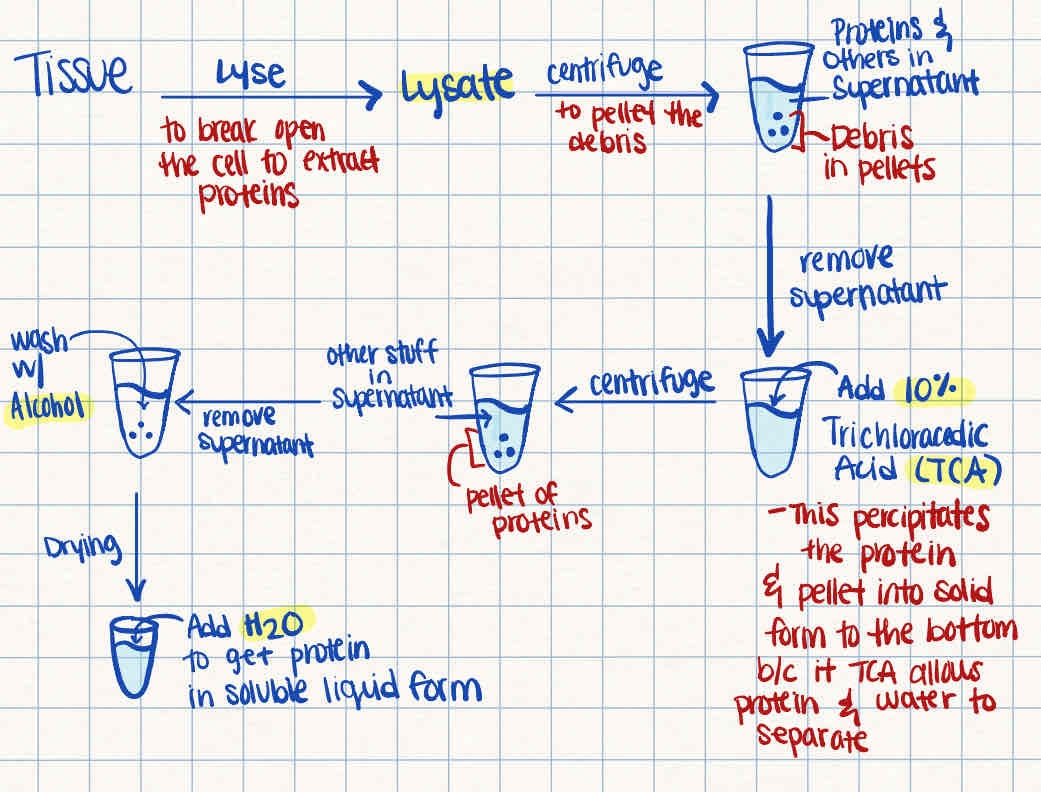 Tissue
Lyse
to break open
the cell to extract
proteins
Lysate
centrifuge
to pellet the
debris
Proteins &
others in
supernatant
Debris
in pellets
remove
supernatant
Add 10%
Trichloracedic
Acid (TCA)
- This percipitates
the protein
& pellet into solid
form to the bottom
b/c it TCA allows
protein & water to
separate
centrifuge
other stuff
in
supernatant
pellet of
proteins
remove
supernatant
wash
w/
Alcohol
Drying
Add H2O
to get protein
in soluble liquid form